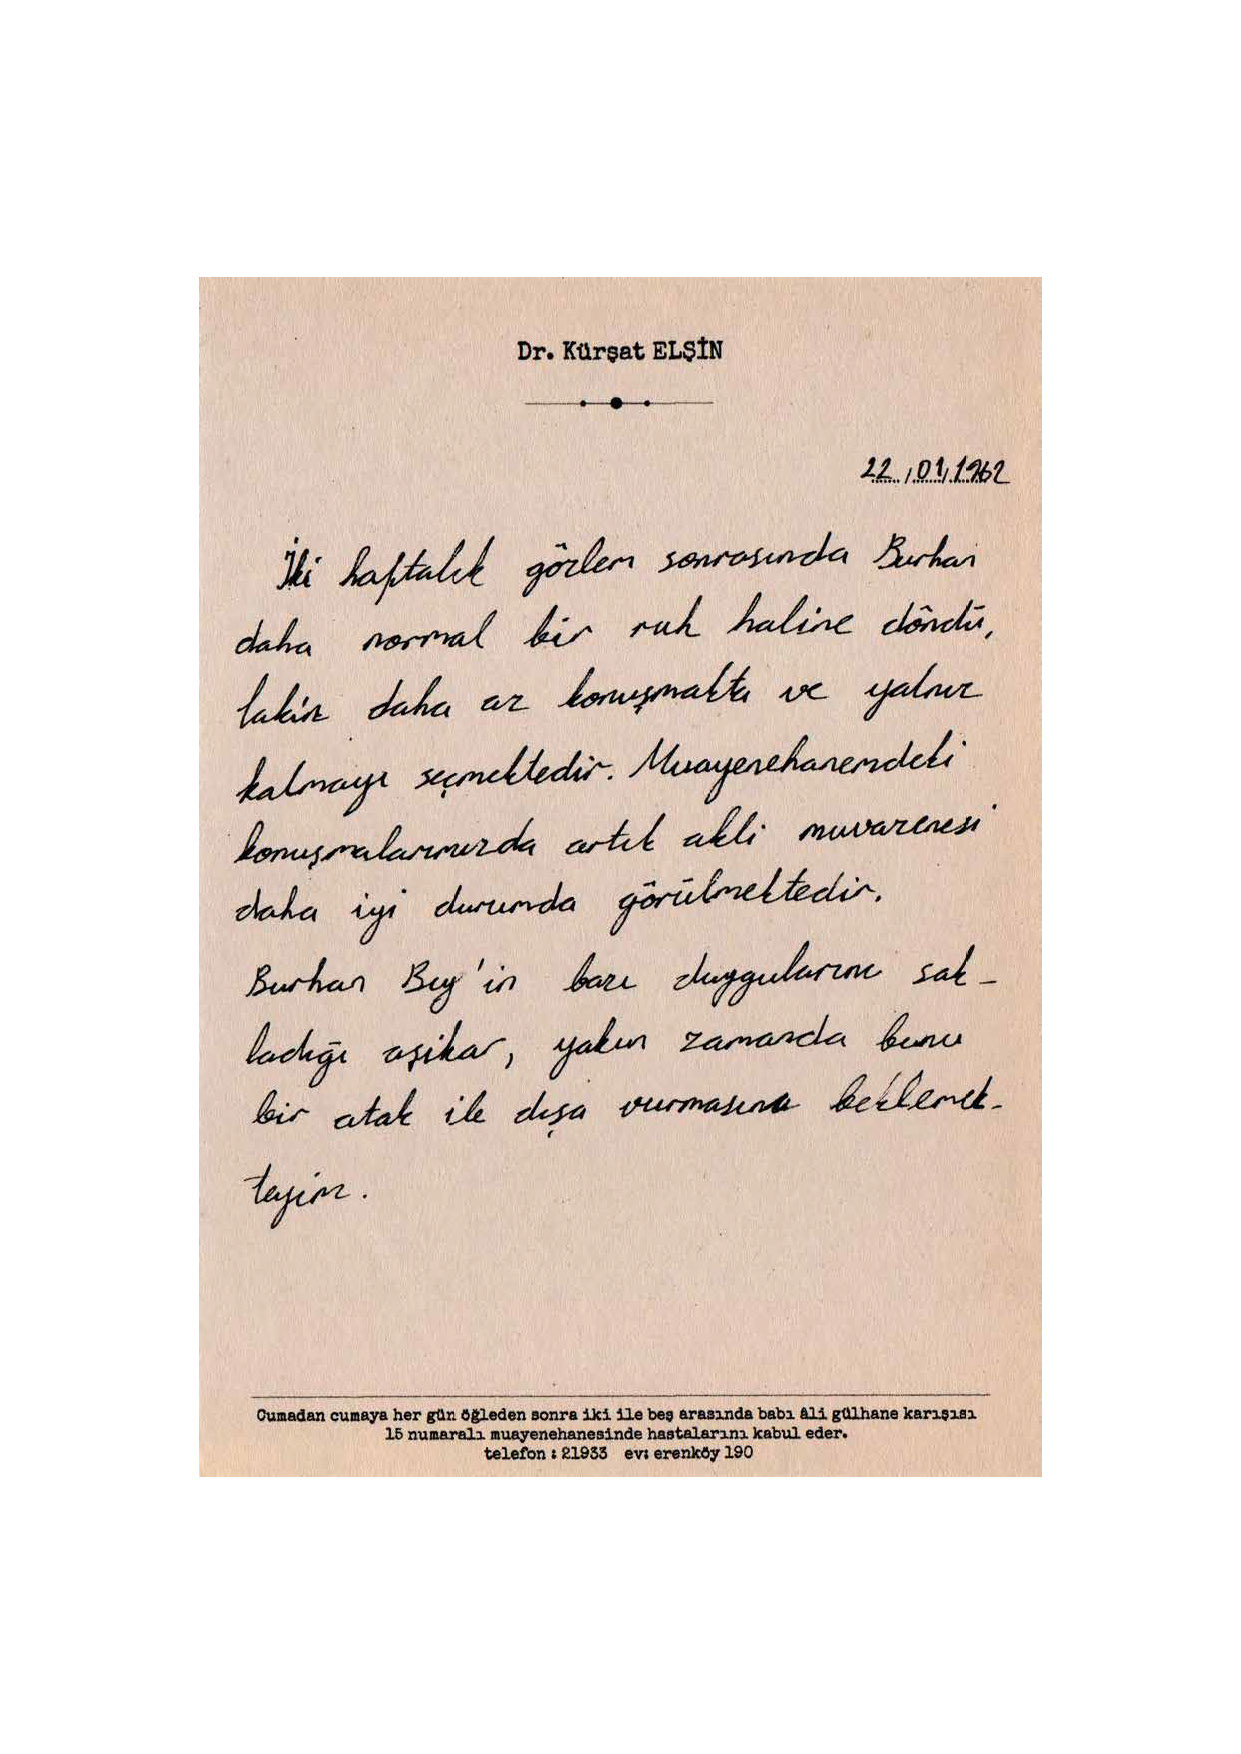 Dr. Kürşat ELŞİN
22/01/1962
İki haftalık gözlem sonrasında Burhan
daha normal bir ruh haline döndü,
lakin daha az konuşmakta ve yalnız
kalmayı seçmektedir. Muayenehanemdeki
konuşmalarımızda artık akli muvazenesi
daha iyi durumda görülmektedir.
Burhan Bey'in bazı duygularını sak-
ladığı aşikar, yakın zamanda bunu
bir atak ile dışa vurmasını beklemek-
teyim.
Cumadan cumaya her gün öğleden sonra iki ile beş arasında babı âli gülhane karışısı
15 numaralı muayenehanesinde hastalarını kabul eder.
telefon : 21933 ev: erenköy 190